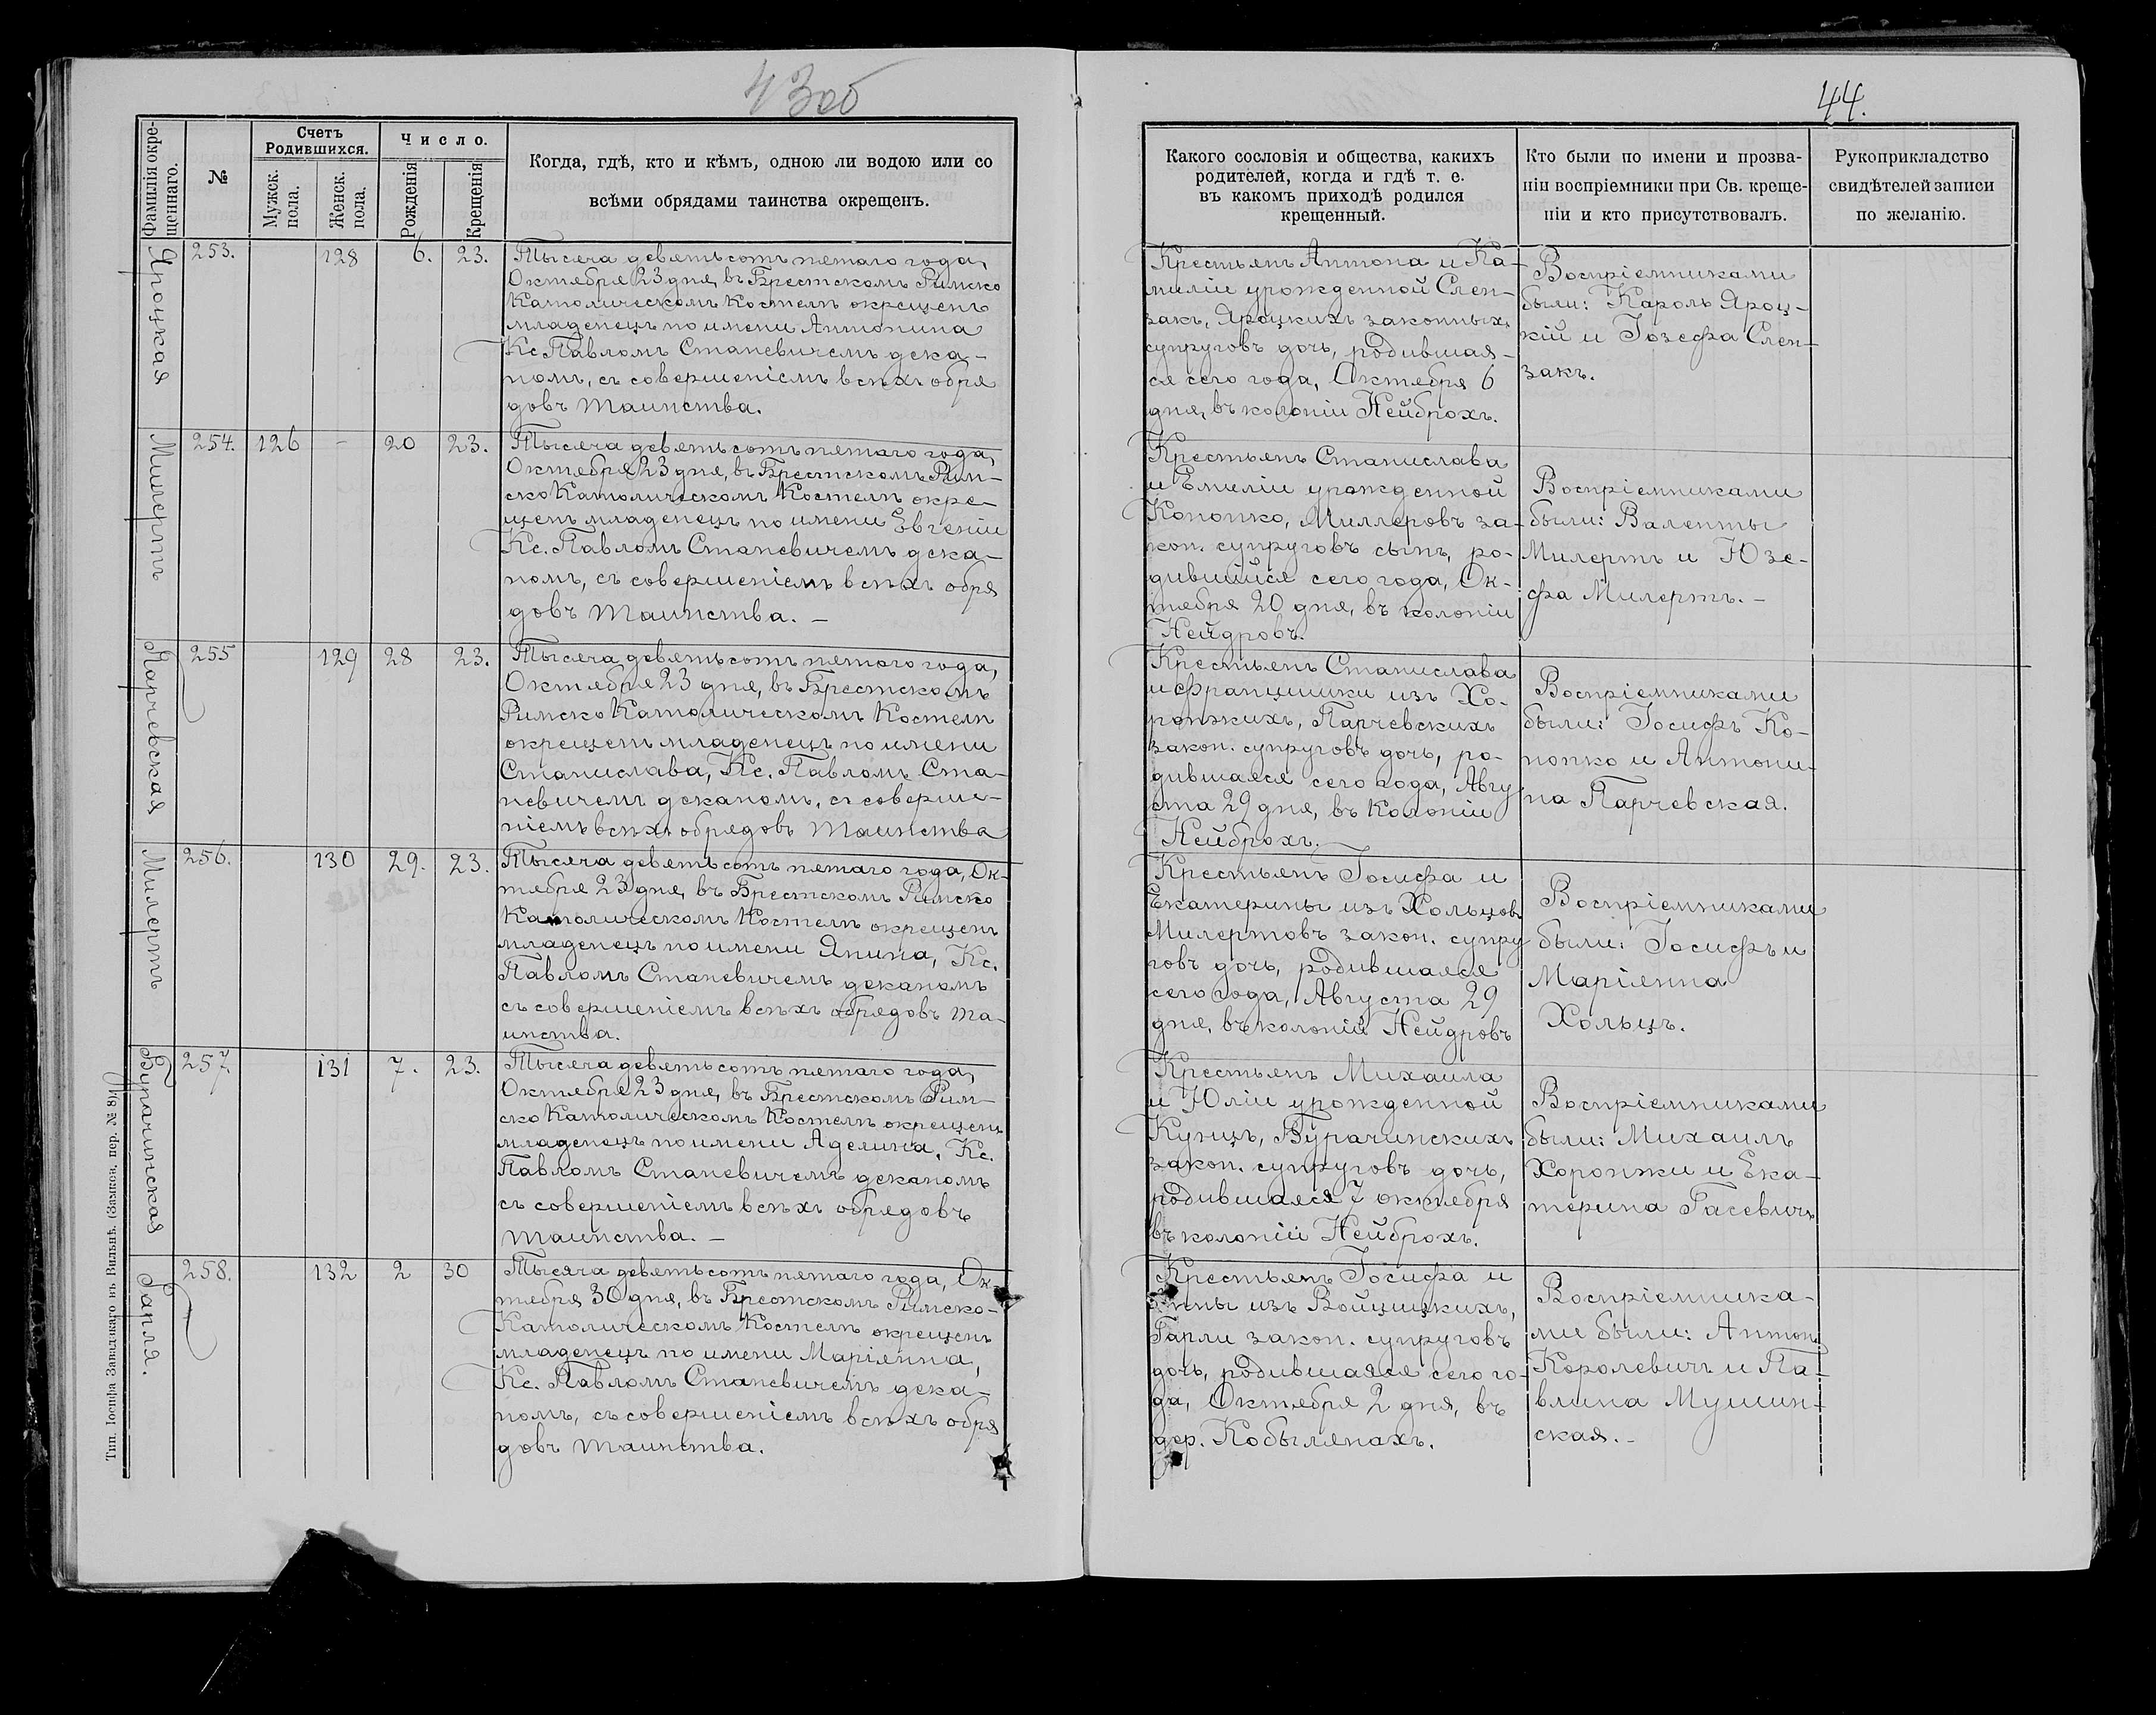 43об
Фамилія окре-
щеннаго.
№
Счетъ
Родившихся.
Мужск.
пола.
Женск.
пола.
Число.
Рожденія
Крещенія
Когда, гдѣ, кто и кѣмъ, одною ли водою или со
всѣми обрядами таинства окрещенъ.
Яроцкая
253.
128
6.
23.
Тысяча девятьсотъ пятаго года,
Октября 23 дня, въ Брестскомъ Римско
Католическомъ Костелѣ окрещенъ
младенецъ по имени Антонина
Кс Павломъ Станевичемъ дека-
номъ, съ совершеніемъ всѣхъ обря
довъ таинства.
Милертъ
254.
126
-
20
23.
Тысяча девятьсотъ пятаго года,
Октября 23 дня, въ Брестскомъ Рим-
ско Католическомъ Костелѣ окре-
щенъ младенецъ по имени Евгеній
Кс. Павломъ Станевичемъ дека-
номъ, съ совершеніемъ всѣхъ обря
довъ таинства. -
Парчевская
255
129
28
23.
Тысяча девятьсотъ пятаго года,
Октября 23 дня, въ Брестскомъ
Римско Католическомъ Костелѣ
окрещенъ младенецъ по имени
Станислава, Кс. Павломъ Ста-
невичемъ деканомъ, съ соверше-
ніемъ всѣхъ обрядовъ таинства
Милертъ
256.
130
29.
23.
Тысяча девятьсотъ пятаго года, Ок-
тября 23 дня, въ Брестскомъ Римско
Католическомъ Костелѣ окрещенъ
младенецъ по имени Янина, Кс.
Павломъ Станевичемъ деканомъ
съ совершеніемъ всѣхъ обрядовъ та-
инства.
Бурачинская
257
131
7.
23.
Тысяча девятьсотъ пятаго года,
Октября 23 дня, въ Брестскомъ Рим-
ско Католическомъ Костелѣ окрещенъ
младенецъ по имени Аделина, Кс.
Павломъ Станевичемъ деканомъ
съ совершеніемъ всѣхъ обрядовъ
таинства. -
Гарля.
258.
132
2
30
Тысяча девятьсотъ пятаго года, Ок-
тября 30 дня, въ Брестскомъ Римско-
Католическомъ Костелѣ окрещенъ
младенецъ по имени Маріянна,
Кс. Павломъ Станевичемъ дека-
номъ, съ совершеніемъ всѣхъ обря
довъ таинства.
Тип. Іосифа Завадзкаго въ Вильнѣ. (Замков. пер. № 8).
44.
Какого сословія и общества, какихъ
родителей, когда и гдѣ т. е.
въ какомъ приходѣ родился
крещенный.
Кто были по имени и прозва-
ніи воспріемники при Св. креще-
ніи и кто присутствовалъ.
Рукоприкладство
свидѣтелей записи
по желанію.
Крестьянъ Антона и Ка-
миліи урожденной Слен-
закъ, Яроцкихъ законныхъ
супруговъ дочь, родившая-
ся сего года, Октября 6
дня, въ колоніи Нейброхъ.
Воспріемниками
были: Кароль Яроц-
кій и Іозефа Слен-
закъ.
Крестьянъ Станислава
и Емиліи урожденной
Конопко, Миллеровъ за-
кон. супруговъ сынъ, ро-
дившійся сего года, Ок-
тября 20 дня, въ колоніи
Нейдровъ.
Воспріемниками
были: Валенты
Милертъ и Юзе-
фа Милертъ. -
Крестьянъ Станислава
и Францишки изъ Хо-
ронжихъ, Парчевскихъ
закон. супруговъ дочь, ро-
дившаяся сего года, Авгу
ста 29 дня, въ Колоніи
Нейброхъ.
Воспріемниками
были: Іосифъ Ко-
нопко и Антони-
на Парчевская.
Крестьянъ Іосифа и
Екатерины изъ Хольцовъ
Милертовъ закон. супру
говъ дочь, родившаяся
сего года, Августа 29
дня, въ колоніи Нейдровъ
Воспріемниками
были: Іосифъ и
Маріянна
Хольцъ.
Крестьянъ Михаила
и Юліи урожденной
Кунцъ, Бурачинскихъ
закон. супруговъ дочь,
родившаяся 7 октября
въ колоніи Нейброхъ.
Воспріемниками
были: Михаилъ
Хоронжи и Ека-
терина Гасевичъ
Крестьянъ Іосифа и
Анны изъ Войцицкихъ,
Гарли закон. супруговъ
дочь, родившаяся сего го-
да, Октября 2 дня, въ
дер. Кобылянахъ.
Воспріемника-
ми были: Антонъ
Королевичъ и Па-
влина Мушин-
ская. -